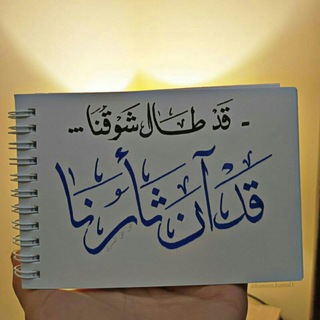 - قَدْ طَال شَوْقُنَا ...
قَدْ آنَ ثَأْرُنَا